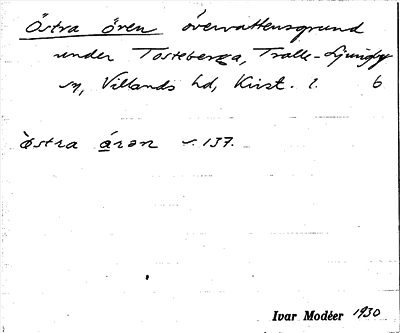 Östra ören övervattensgrund
under Tosteberga, Tralle-Ljungby
sn, Villands hd, Krist. l. 6
östra áran s. 137.
Ivar Modéer 1930